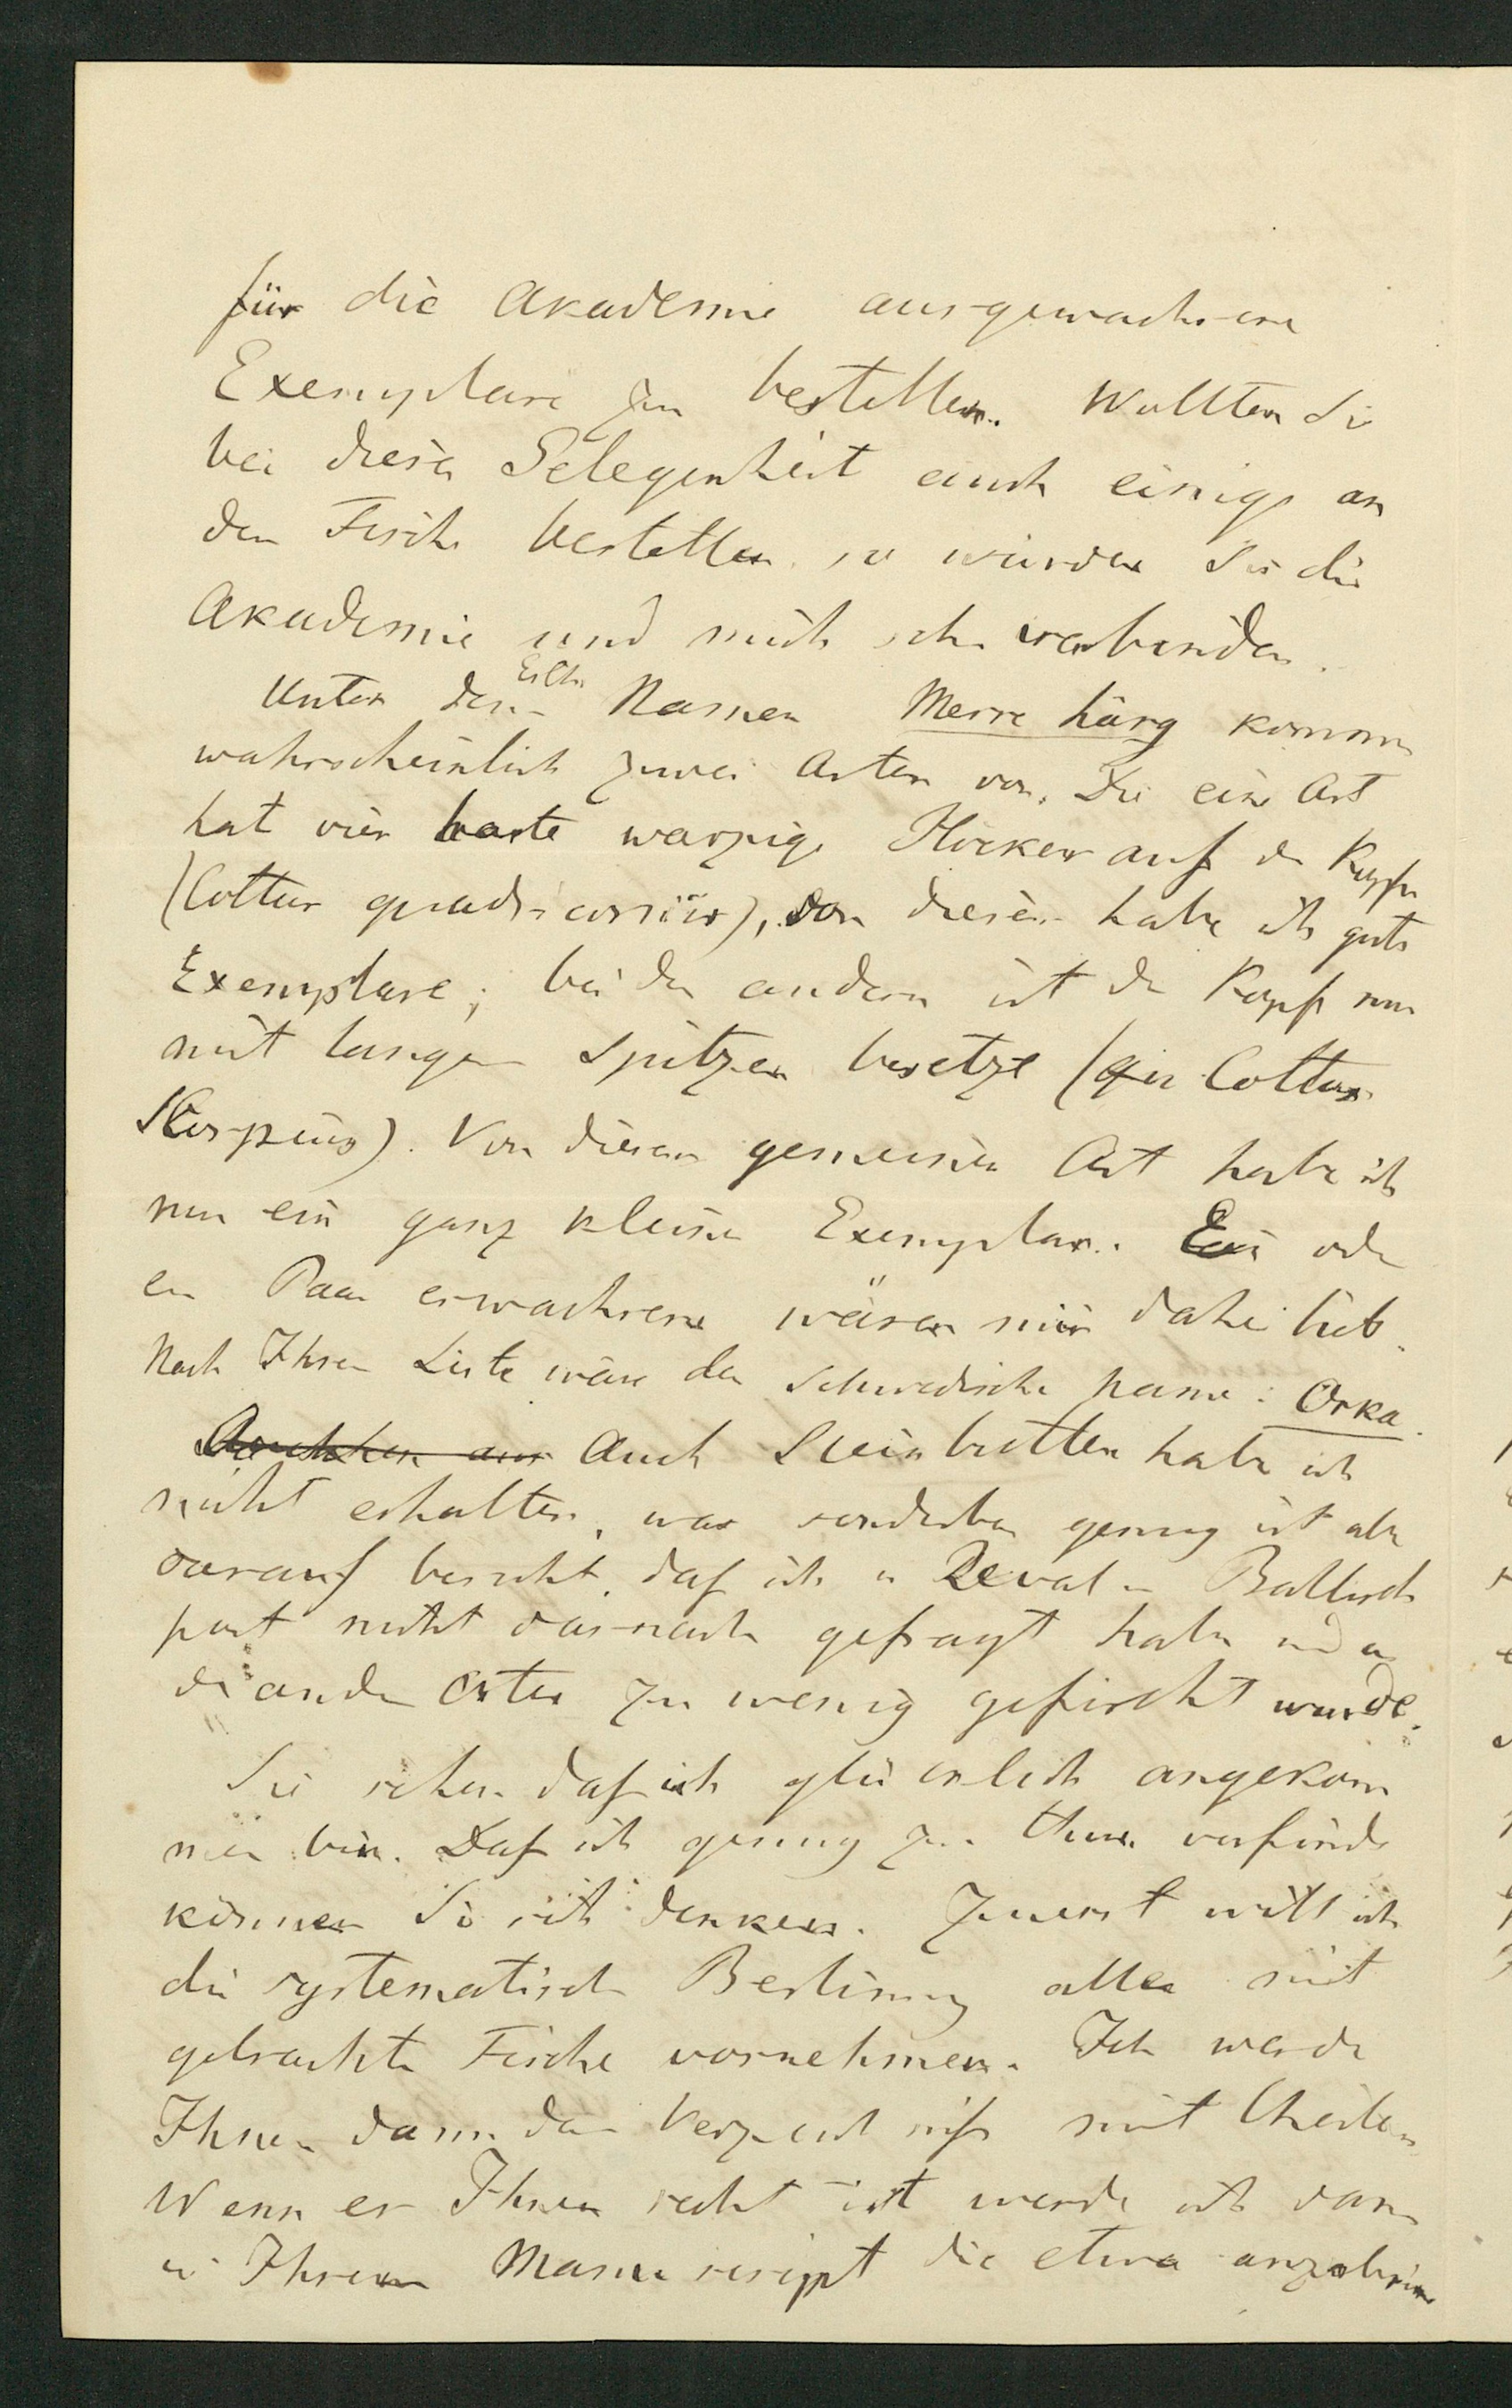 für die Akademie ausgewachsene
Exemplare zu bestellen. Wollten Sie
bei dieser Gelegenheit auch einige an
dere Fische bestellen, so würden Sie die
Akademie und mich sehr verbinden.
Unter dem Esthn Namen Merre härg kommen
wahrscheinlich zwei Arten vor. Die eine Art
hat vier harte warzige Höcker auf dem Kopfe
(Cottus quadricornis), von dieser habe ich gute
Exemplare; bei der andern ist der Kopf nur
mit langen Spitzen besetzt (der Cottus
Scorpius). Von dieser gemeinen Art habe ich
nur ein ganz kleines Exemplar. Ein oder
ein Paar erwachsene wären mir daher lieb.
Nach Ihrer Liste wäre der Schwedische Name: Orka.
Auch Steinbutten habe ich
nicht erhalten, was sonderbar genug ist aber
darauf beruht, daß ich in Reval u Baltisch
port nicht darnach gefragt habe und an
die andern Orten zu wenig gefischt wurde.
Sie sehen daß ich glücklich angekom
men bin. Daß ich genug zu thun vorfinde
können Sie sich denken. Zuerst will ich
die systematische Bestimmung aller mit
gebrachten Fische vornehmen. Ich werde
Ihnen dann das Verzeichniß mit theilen
Wenn es Ihnen recht ist werde ich dann
in Ihrem Manuscript die etwa anzubrin